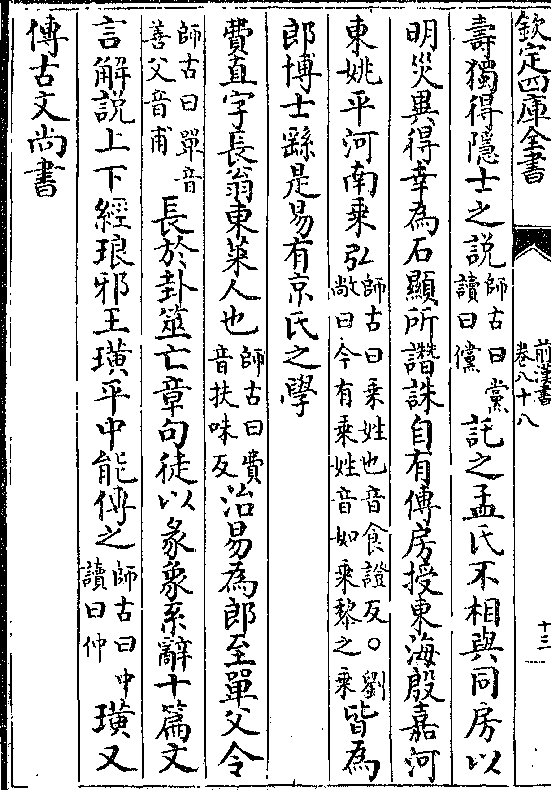 欽定四庫全書
前漢書
卷八十八
十三
壽獨得隱士之說師古曰黨讀曰儻託之孟氏不相與同房以
明災異得幸為石顯所譖誅自有傳房授東海殷嘉河
東姚平河南乘弘師古曰乘姓也音食證反○劉敞曰今有乘姓音如乘黎之乘皆為
郎博士繇是易有京氏之學
費直字長翁東萊人也師古曰費音扶味反治易為郎至單父令
師古曰單音善父音甫長於卦筮亡章句徒以彖象系辭十篇文
言解說上下經琅邪王璜平中能傳之師古曰中讀曰仲璜又
傳古文尚書